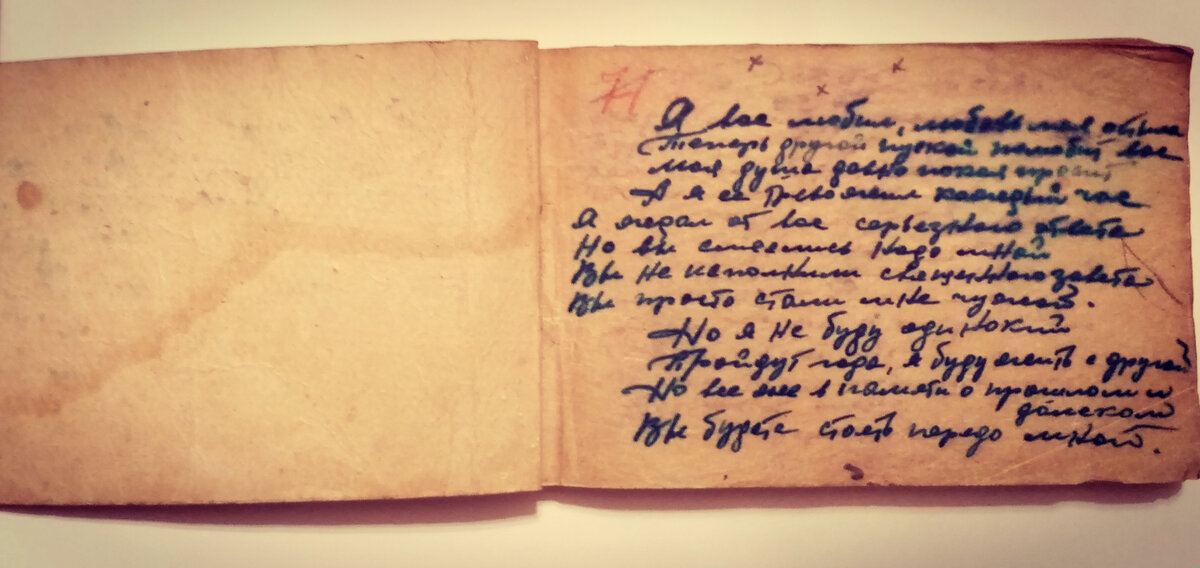 71
Я вас любил, любовь моя была
Теперь другой пускай полюбит вас
моя душа давно покоя просит
А я ее тревожил каждый час
Я ждал от вас серьезного ответа
Но вы смеялись надо мной
Вы не исполнили священного завета
Вы просто стали мне чужой.
Но я не буду одинокий
Пройдут года, я буду жить с другой
Но все же в памяти о прошлом и
далеком
Вы будете стоять передо мной.